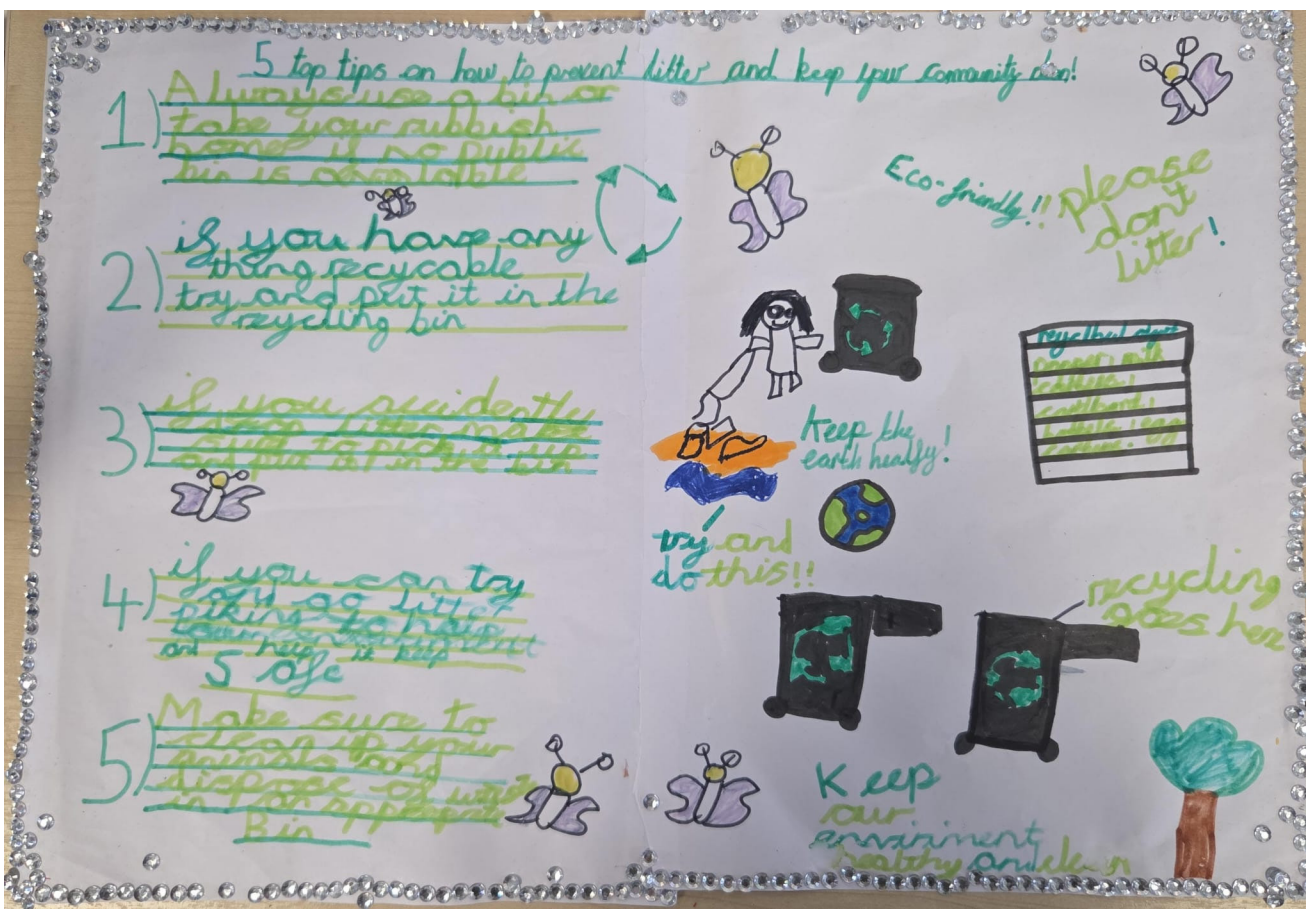 5 top tips on how to prevent litter and keep your community clean!
1) Always use a bin or
take your rubbish
home if no public
bin is available
2) if you have any
thing recycable
try and put it in the
recycling bin
3) if you accidently
drop litter make
sure to pick it up
and put it in the bin
4) if you can try
and go litter
piking to help
your environment
and help it keep
Safe
5) Make sure to
clean up your
animals and
dispose of waste
in an appropriate
Bin
Eco-friendly!!
please
don't
litter!
Keep the
earth healfy!
try and
do this!!
recycling
goes here
Keep
our
envirinment
healthy and clean